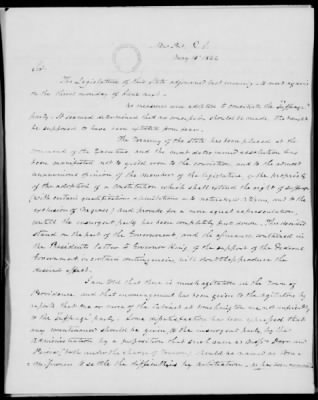 New Port, R. I.
May 10th 1842
Sir.
The Legislature of this State adjourned last evening, to meet again
on the third monday of June next.
no measures were adopted to conciliate the Suffrage
party. It seemed determined that no concession should be made, that might
be supposed to have been extorted from fear.
The money of the State has been placed at the
command of the Executive and the most determined resolution has
been manifested not to yield even to the conviction, and to the almost
unanimous opinion of the members of the legislature, of the propriety
of the adoption of a constitution which shall extend the right of suffrage
(with certain qualifications and limitations as to naturalized citizens, and to the
exclusion of Negroes) and provide for a more equal representation,
until the insurgent party has been completely put down. This decided
stand on the part of the Government and the assurance contained in
the Presidents letter to Governor King of the support of the Federal
Government in certain contingencies, will doubtless produce the
desired effect.
I am told that there is much agitation in the town of
Providence and that encouragement has been given to the agitators by
reports that one or more of the Cabinet at Washington are not unfriendly
to the Suffrage party. Some dissatisfaction has been expressed that
any countenance should be given to the insurgent party, by the
Administration by a proposition that such men as Messrs Dorr and
Pearce, both under the charge of treason, should be named as
Commissioners to settle the difficulties by arbitration, as has been